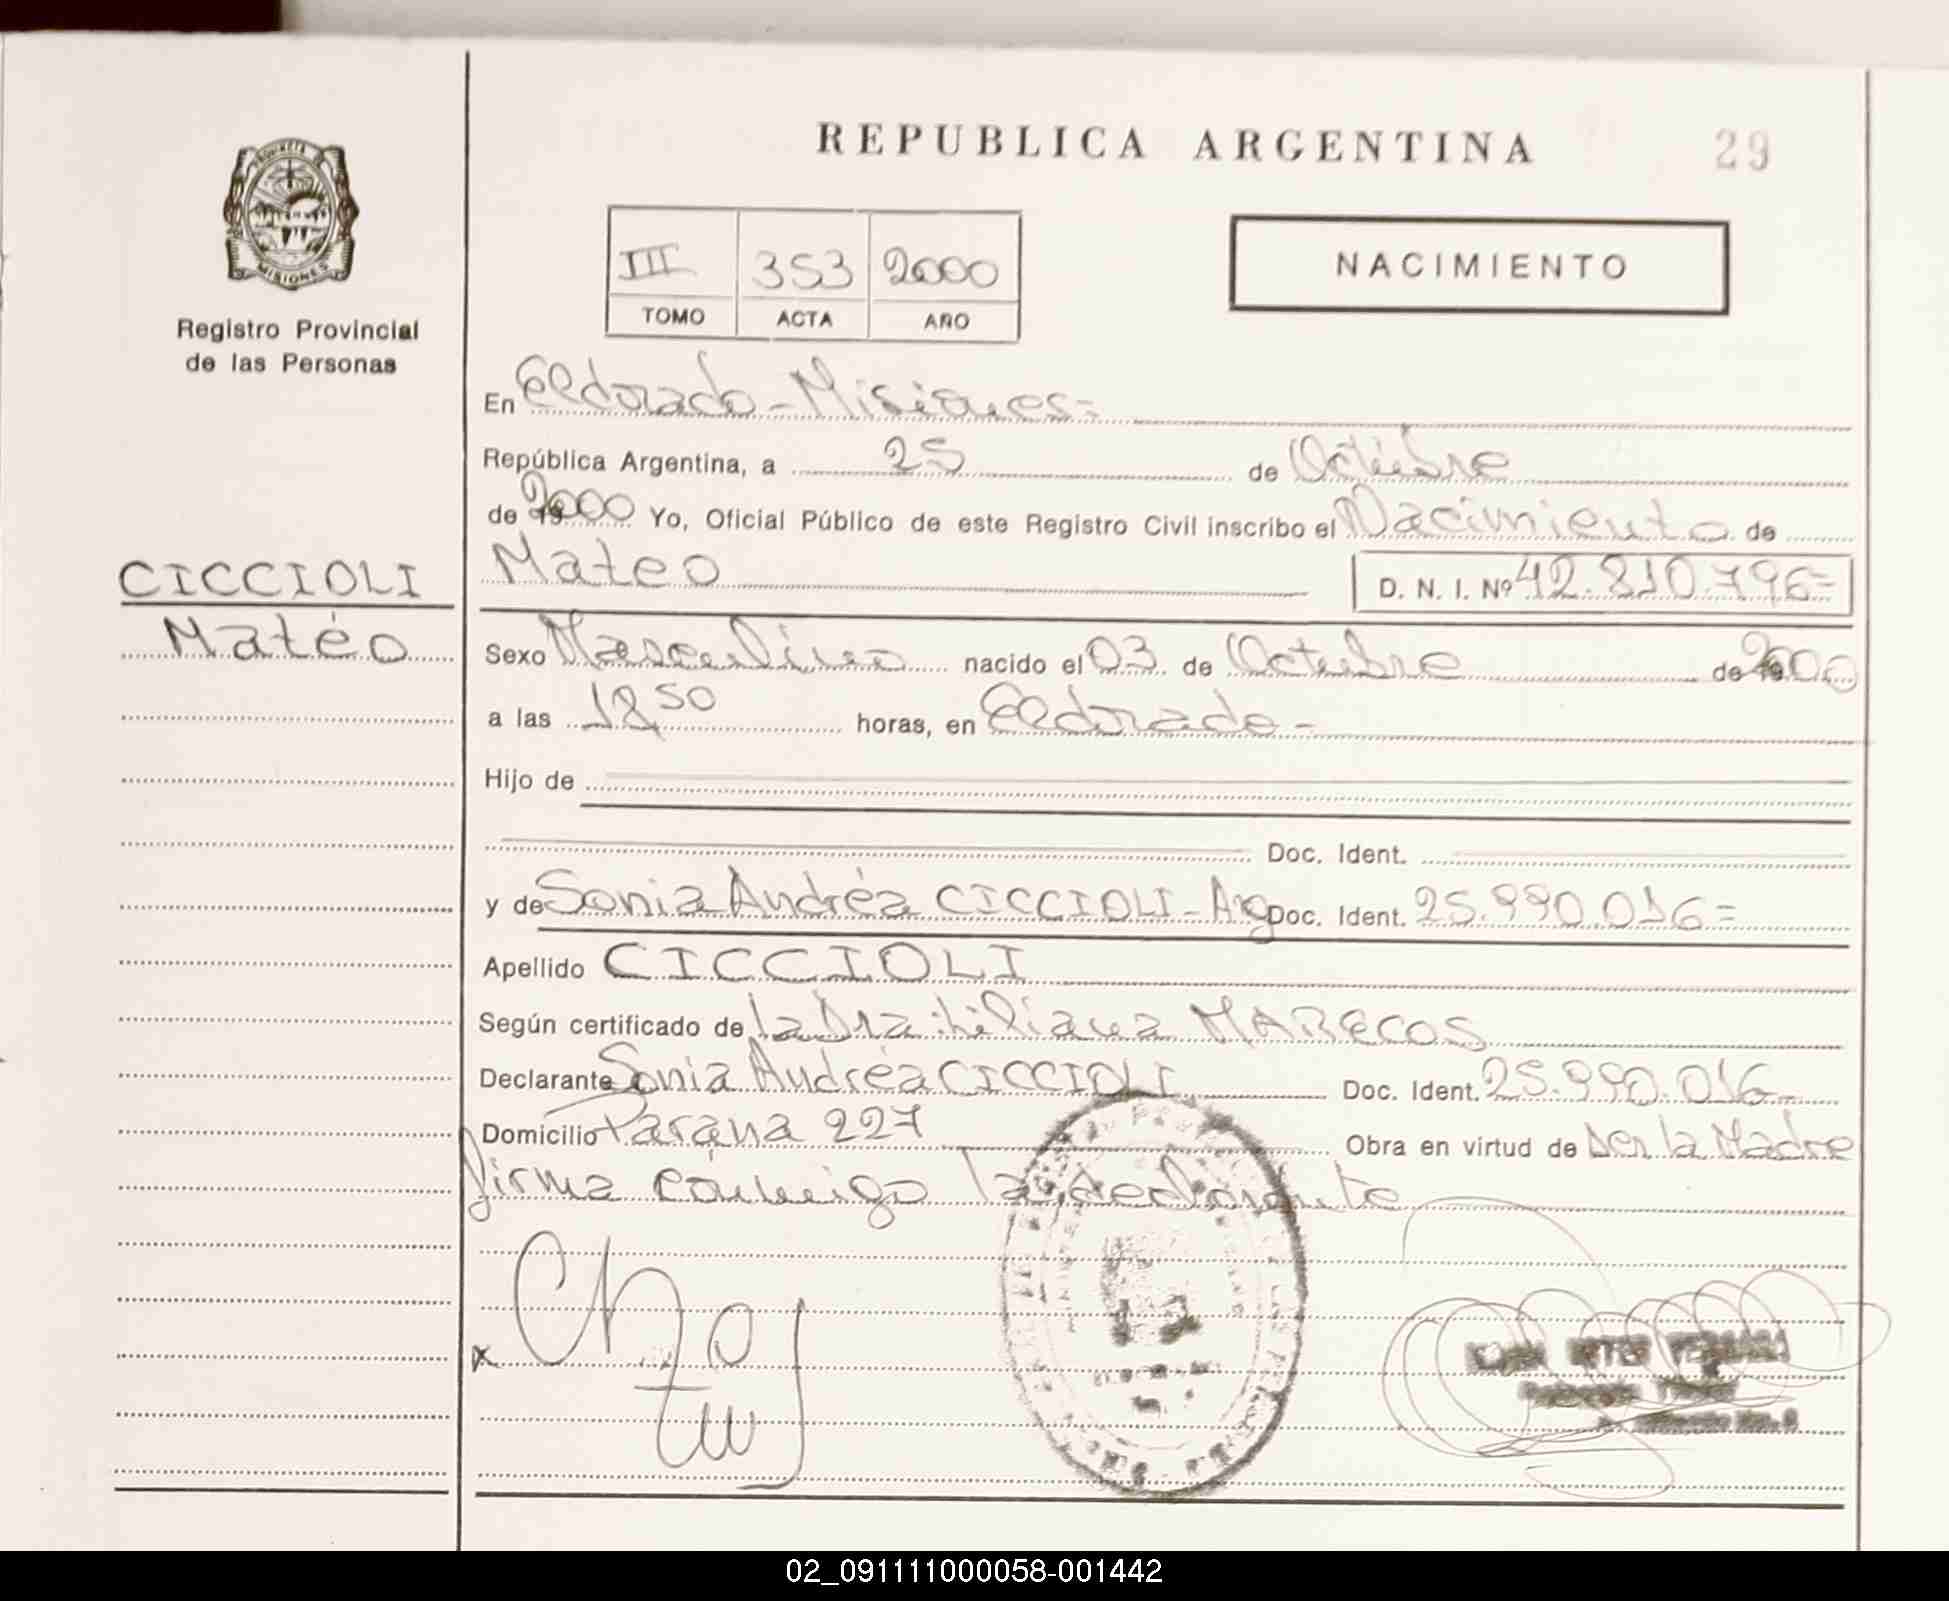 REPUBLICA ARGENTINA
29
PROVINCIA DE
MISIONES
Registro Provincial
de las Personas
III 353 2000
TOMO ACTA AÑO
NACIMIENTO
En Eldorado - Misiones =
República Argentina, a 25 de Octubre
de 2000 Yo, Oficial Público de este Registro Civil inscribo el Nacimiento de
CICCIOLI
Matéo
Mateo D. N. I. Nº 42.810.796=
Sexo Masculino nacido el 03 de Octubre de 2000
a las 12 50 horas, en Eldorado -
Hijo de
Doc. Ident.
y de Sonia Andréa CICCIOLI - Arg Doc. Ident. 25.990.016=
Apellido CICCIOLI
Según certificado de la Dra. Liliana MARECOS
Declarante Sonia Andréa CICCIOLI Doc. Ident. 25.990.016-
Domicilio Parana 227 Obra en virtud de ser la Madre
firma conmigo la declarante
x
02_091111000058-001442